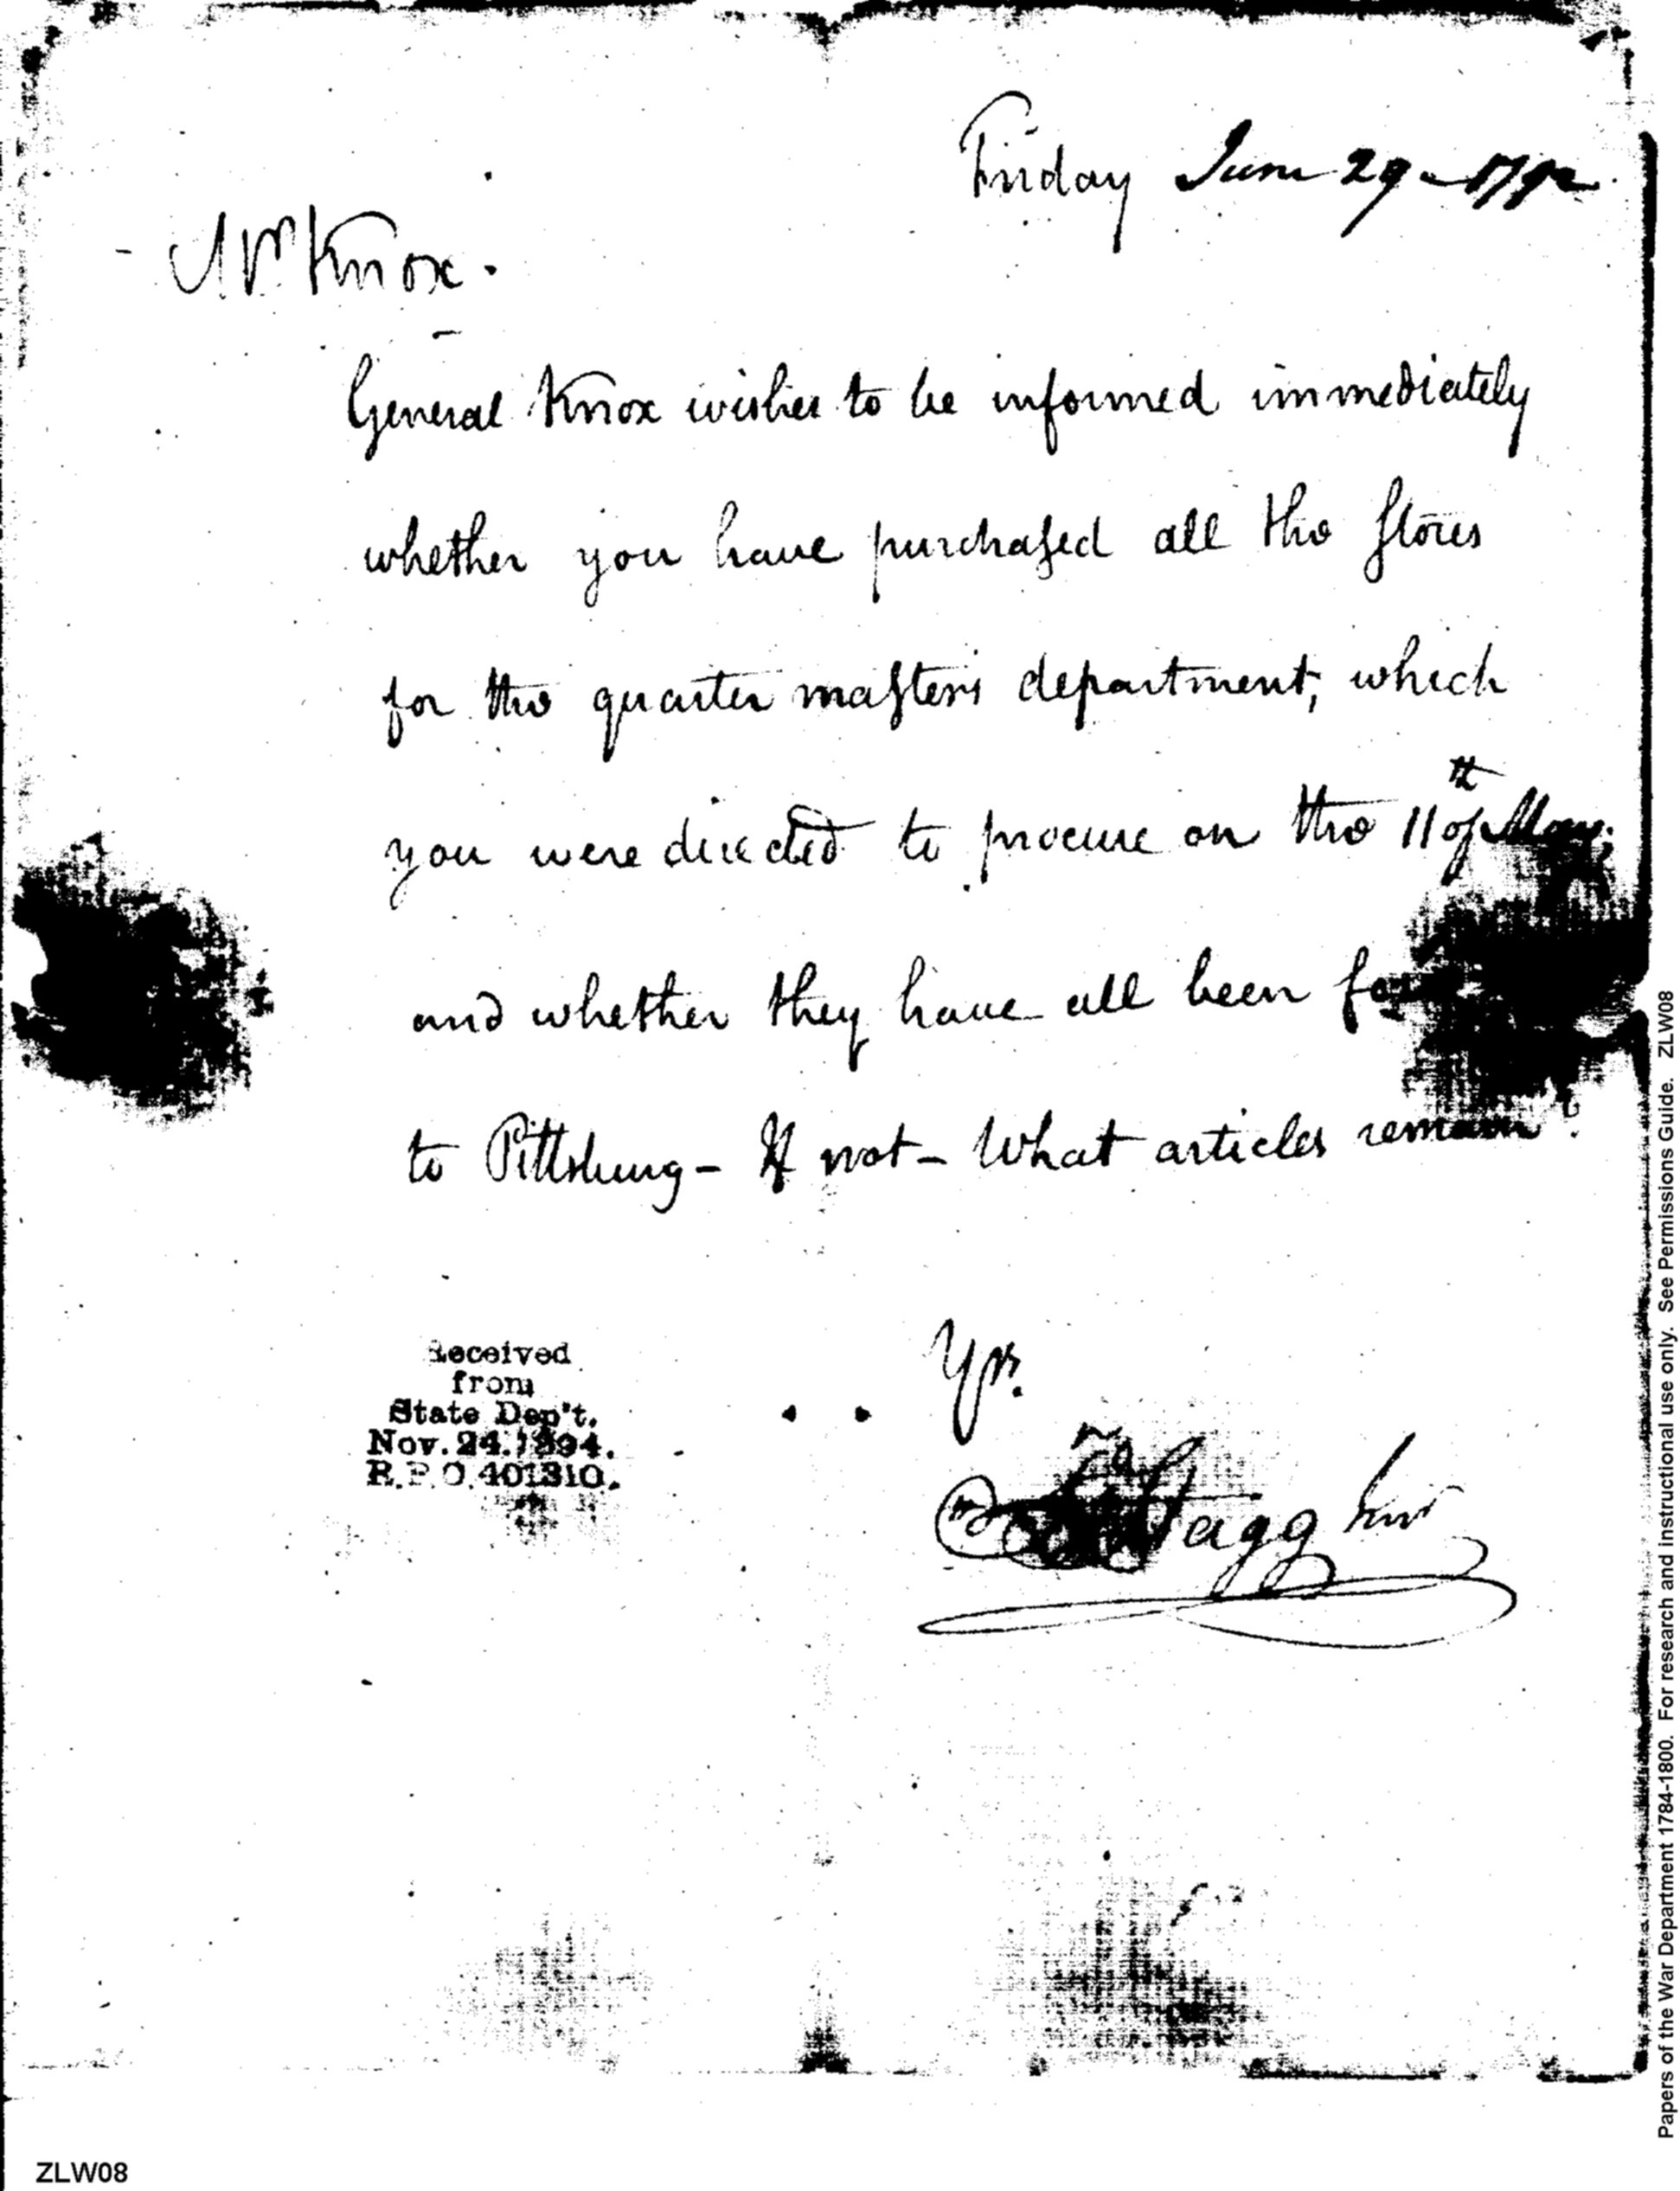 Friday June 29 - 1792
Mr Knox.
General Knox wishes to be informed immediately
whether you have purchaſed all the ſtores
for the quarter maſters department, which
you were directed to procure on the 11th of May.
and whether they have all been
to Pittsburg - If not - What articles remain.
Received
from
State Dep't.
Nov. 24. 1894.
R.P.O. 401310.
Yrs.
Stagg Junr
Papers of the War Department 1784-1800. For research and instructional use only. See Permissions Guide. ZLW08
ZLW08